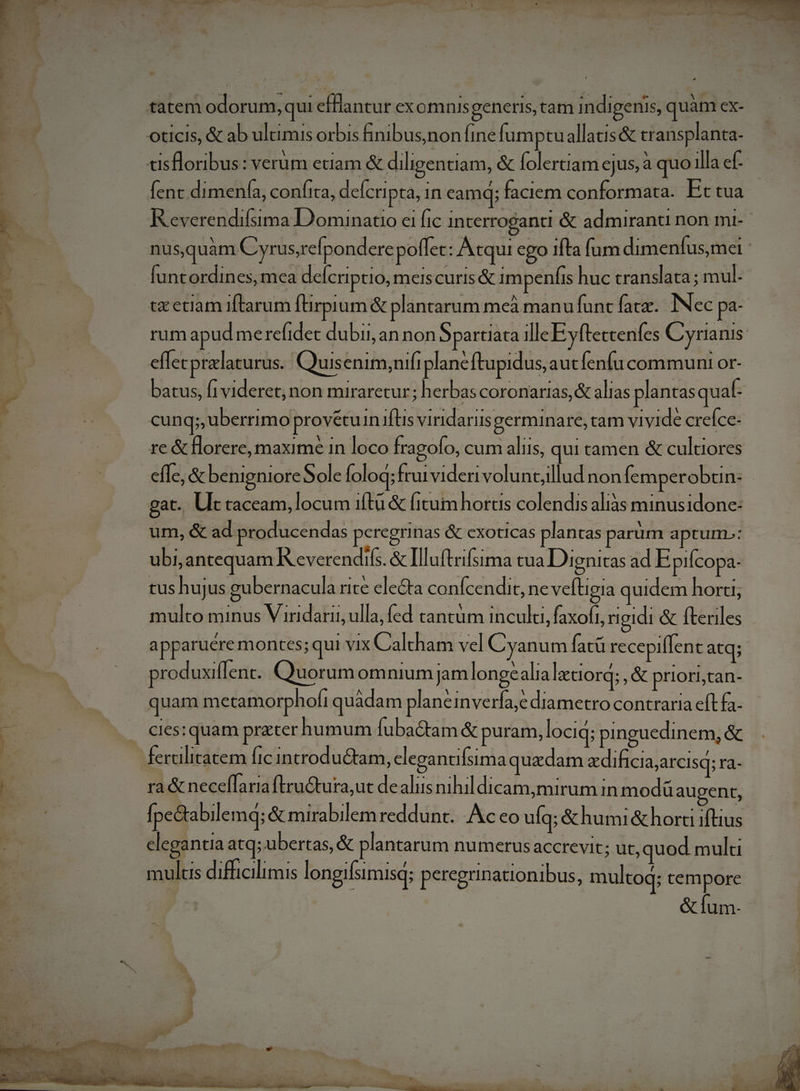 tatem odorum, qui efflantur ex omnis generis, tam indigenis, quàm ex-
oticis, & ab ultimis orbis finibus, non ſine ſumptu allatis & transplanta-
tis floribus: verùm etiam & diligentiam, & ſolertiam ejus, à quo illa eſ-
ſent dimenſa, conſita, deſcripta, in eamq; faciem conformata. Et tua
Reverendiſsima Dominatio ei ſic interroganti & admiranti non mi-
nus, quàm Cyrus, reſpondere poſſet: Atqui ego iſta ſum dimenſus, mei
ſunt ordines, mea deſcriptio, meis curis & impenſis huc translata; mul-
tæ etiam iſtarum ſtirpium & plantarum meâ manu ſunt ſatæ. Nec pa-
rum apud me reſidet dubii, an non Spartiata ille Eyſtettenſes Cyrianis
eſſet prælaturus. Quis enim, niſi planè ſtupidus, aut ſenſu communi or-
batus, ſi videret, non miraretur; herbas coronarias, & alias plantas quaſ-
cunq;, uberrimo provétu in iſtis viridariis germinare, tam vividè creſce-
re & florere, maximè in loco fragoſo, cum aliis, qui tamen & cultiores
eſſe, & benigniore Sole ſoloq; frui videri volunt, illud non ſemper obtin-
gat. Ut taceam, locum iſtū & ſitum hortis colendis aliàs minus idone-
um, & ad producendas peregrinas & exoticas plantas parùm aptum.:
ubi, antequam Reverendiſs. & Illuſtriſsima tua Dignitas ad Epiſcopa-
tus hujus gubernacula ritè electa conſcendit, ne veſtigia quidem horti,
multo minus Viridarii, ulla, ſed tantùm inculti, ſaxoſi, rigidi & ſteriles
apparuére montes; qui vix Caltham vel Cyanum ſatū recepiſſent atq;
produxiſſent. Quorum omnium jam longè alia lætiorq;, & priori, tan-
quam metamorphoſi quâdam planè inverſa, è diametro contraria eſt fa-
cies: quam præter humum ſubactam & puram, lociq; pinguedinem, &
fertilitatem ſic introductam, elegantiſsima quædam ædificia, arcisq; ra-
ra & neceſſaria ſtructura, ut de aliis nihil dicam, mirum in modū augent,
ſpectabilemq; & mirabilem reddunt. Ac eo uſq; & humi & horti iſtius
elegantia atq; ubertas, & plantarum numerus accrevit; ut, quod multi
multis difficilimis longiſsimisq; peregrinationibus, multoq; tempore
& ſum-